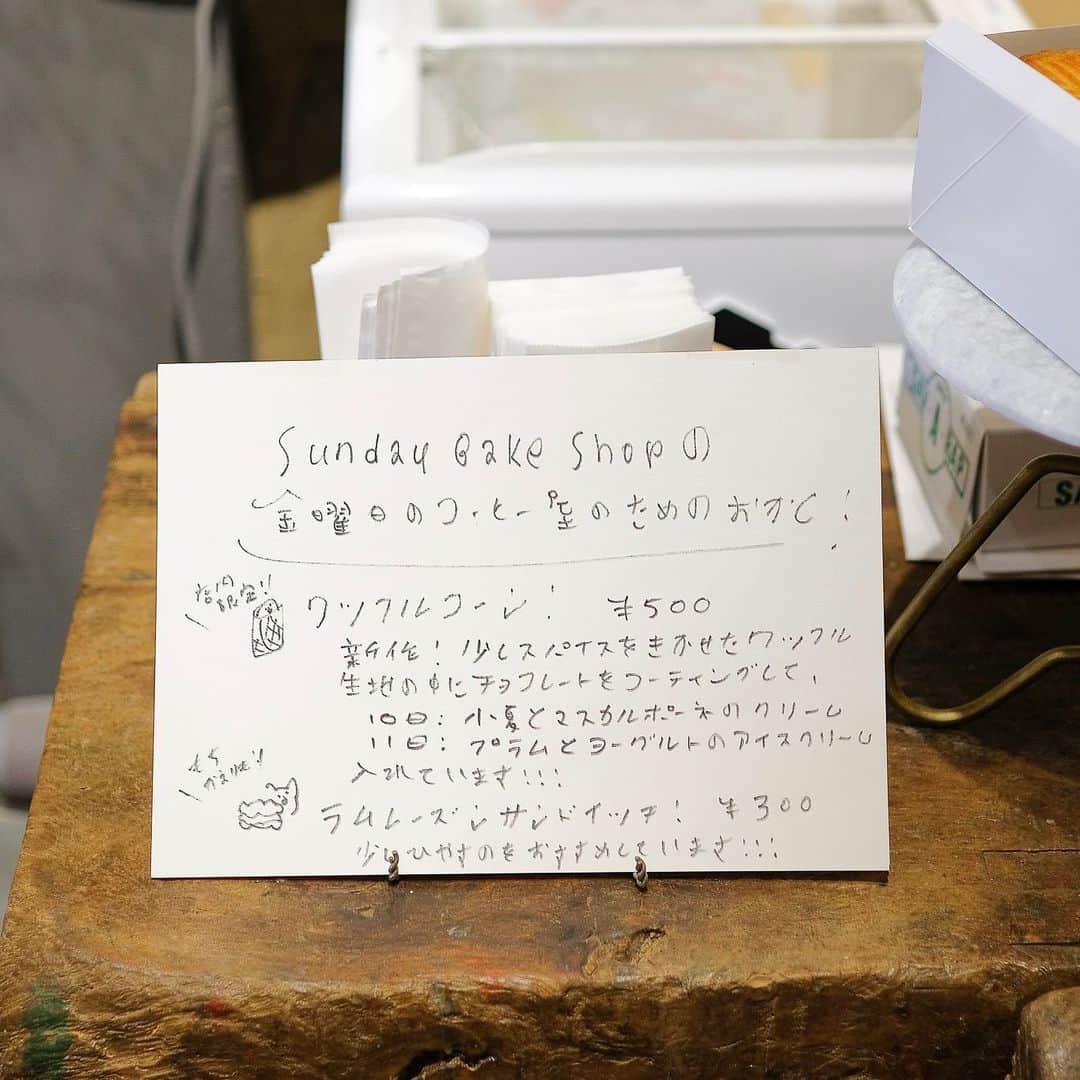 Sunday Bake Shopの
金曜日のコーヒー屋のためのおかし!
店内
限定!!
ワッフルコーン! ¥500
新作!少しスパイスをきかせたワッフル
生地の中にチョコレートをコーティングして、
10日:小夏とマスカルポーネのクリーム
11日:プラムとヨーグルトのアイスクリーム
入れています!!!
もち
かえりも!!
ラムレーズンサンドイッチ! ¥300
少しひやすのをおすすめしています!!!
A
SA